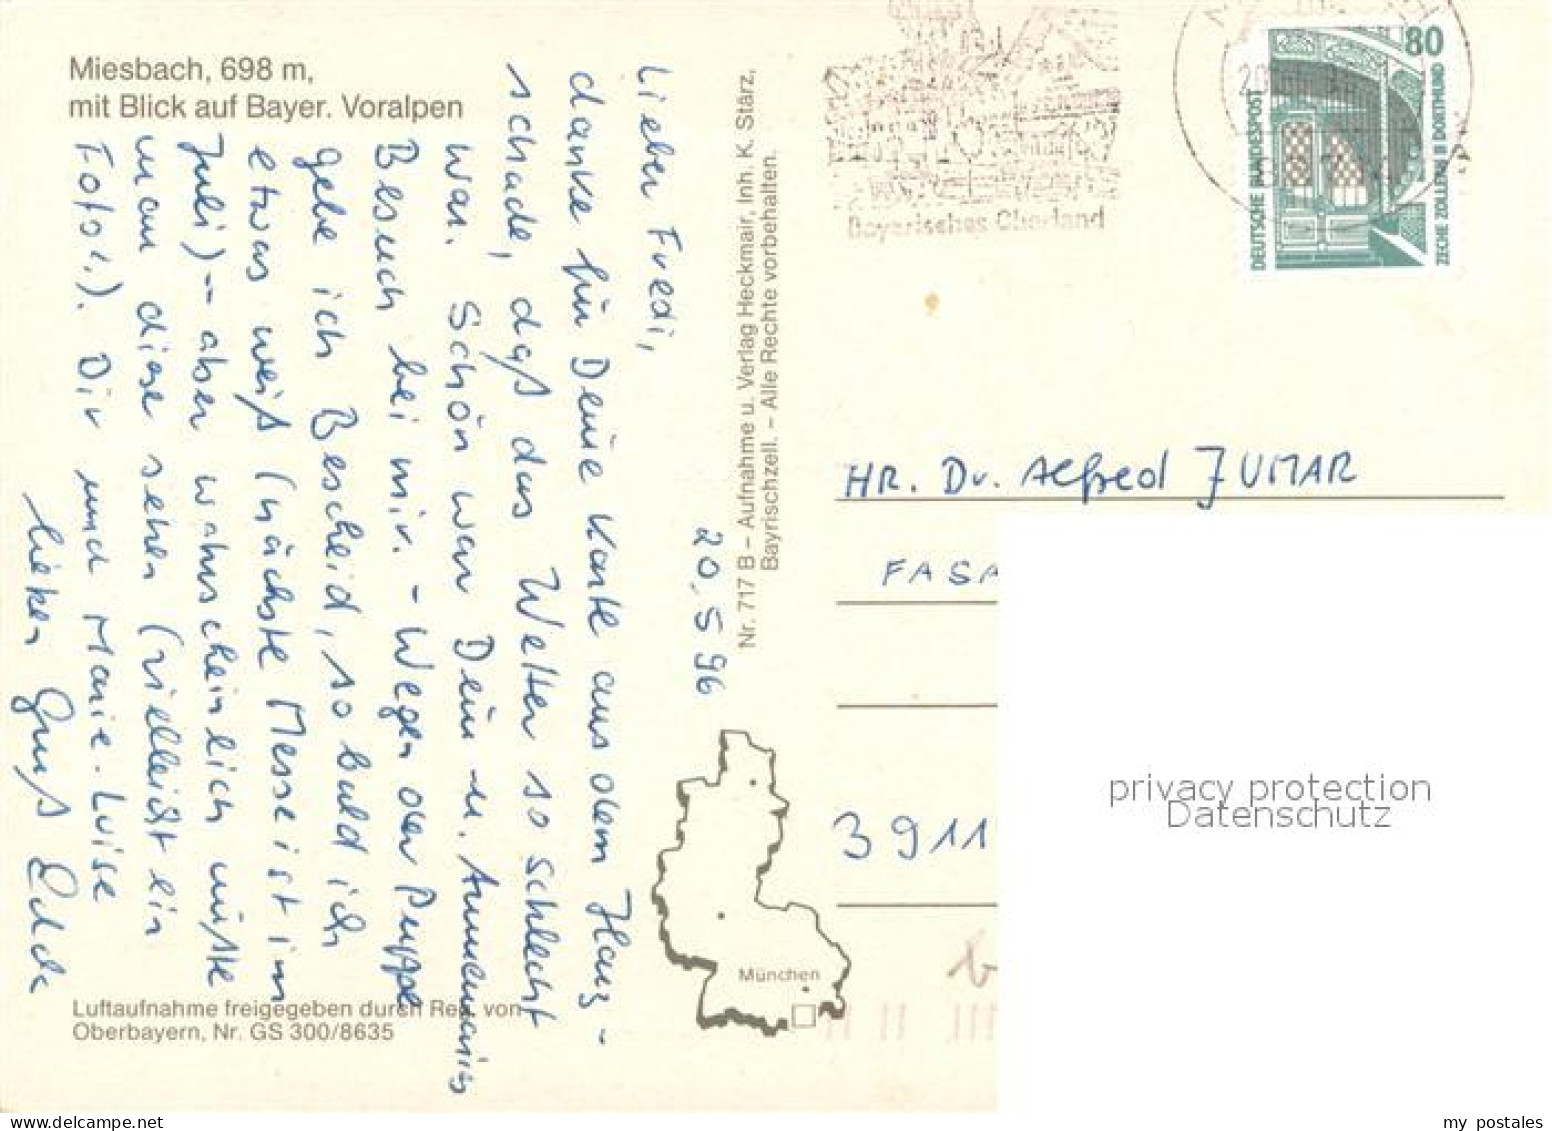 Miesbach, 698 m,
mit Blick auf Bayer. Voralpen
20.5 96
Lieber Fredi,
danke für Deine Karte aus dem Harz -
schade, daß das Wetter so schlecht
war. Schön war Dein u. Annemaries
Besuch bei mir. - Wegen der Puppe
gebe ich Bescheid, so bald ich
etwas weiß (nächste Messe ist im
Juli) -- aber wahrscheinlich müßte
man diese sehen (vielleicht ein
Foto!). Dir und Marie-Luise
lieben Gruß
Luftaufnahme freigegeben durch Reg. von
Oberbayern, Nr. GS 300/8635
Nr. 717 B – Aufnahme u. Verlag Heckmair, Inh. K. Starz,
Bayrischzell. – Alle Rechte vorbehalten.
München
Bayerisches Oberland
80
DEUTSCHE BUNDESPOST
ZECHE ZOLLERN II DORTMUND
HR. Dr. Alfred JUMAR
FASA
3911
privacy protection
Datenschutz
my postales